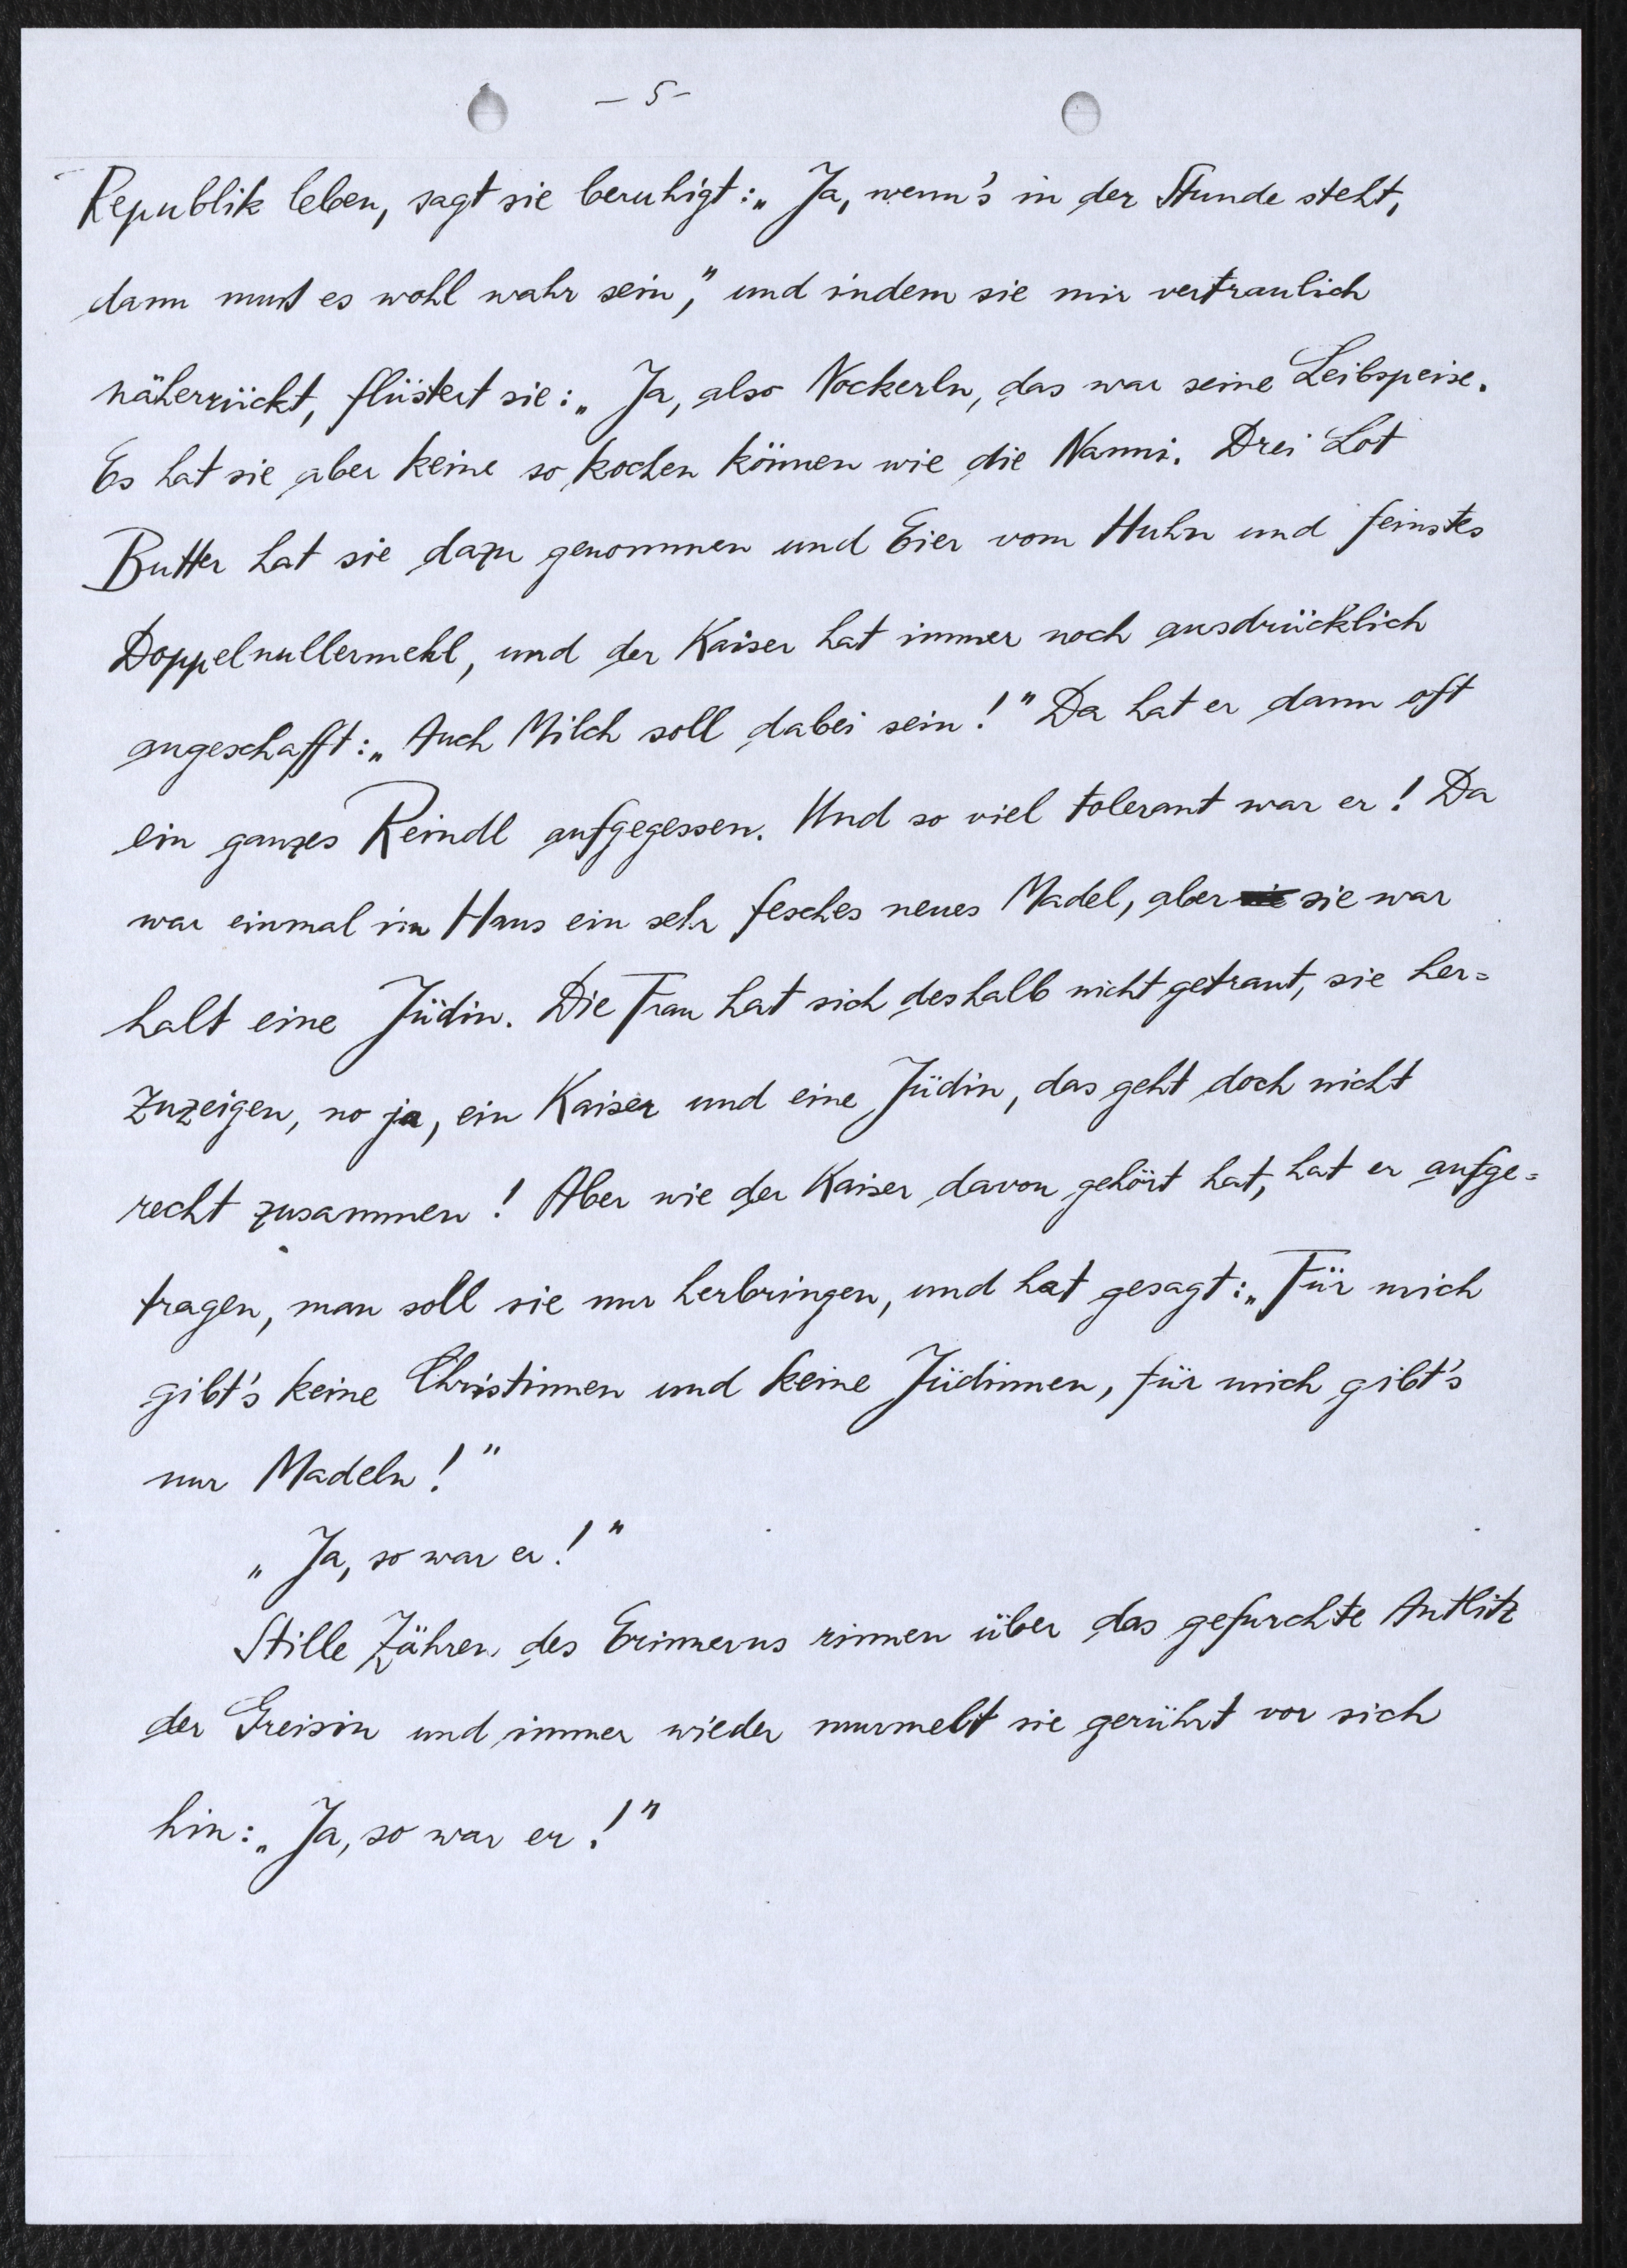 – 5 –
Republik leben, sagt sie beruhigt: „Ja, wenn's in der Stunde steht,
dann muß es wohl wahr sein," und indem sie mir vertraulich
näherrückt, flüstert sie: „Ja, also Nockerln, das war seine Leibspeise.
Es hat sie aber keine so kochen können wie die Nanni. Drei Lot
Butter hat sie dazu genommen und Eier vom Huhn und feinstes
Doppelnullermehl, und der Kaiser hat immer noch ausdrücklich
angeschafft: „Auch Milch soll dabei sein!" Da hat er dann oft
ein ganzes Reindl aufgegessen. Und so viel tolerant war er! Da
war einmal im Haus ein sehr fesches neues Madel, aber sie war
halt eine Jüdin. Die Frau hat sich deshalb nicht getraut, sie her=
zuzeigen, no ja, ein Kaiser und eine Jüdin, das geht doch nicht
recht zusammen! Aber wie der Kaiser davon gehört hat, hat er aufge=
tragen, man soll sie nur herbringen, und hat gesagt: „Für mich
gibt's keine Christinnen und keine Jüdinnen, für mich gibt's
nur Madeln!"
„Ja, so war er!"
Stille Zähren des Erinnerns rinnen über das gefurchte Antlitz
der Greisin und immer wieder murmelt sie gerührt vor sich
hin: „Ja, so war er!"